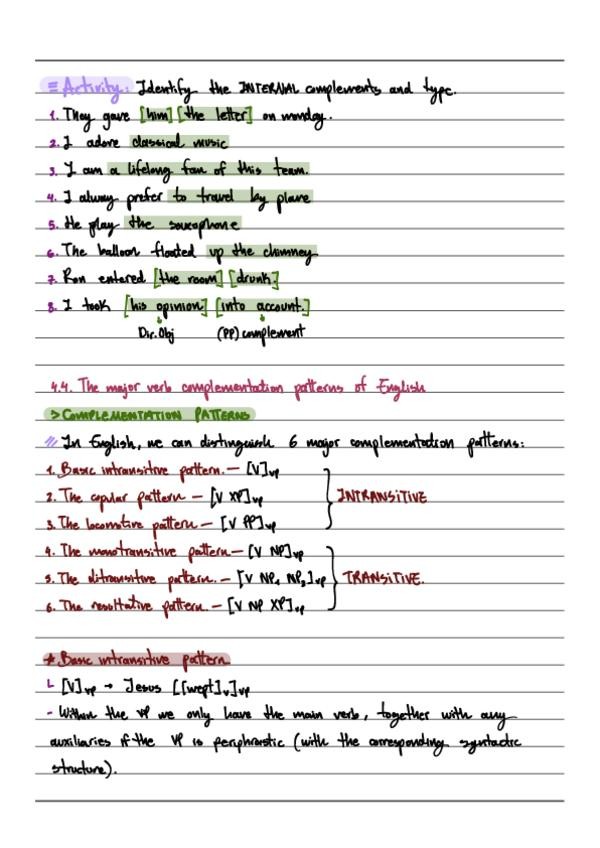 ≡ Activity: Identify the INTERNAL complements and type.
1. They gave [him] [the letter] on monday.
2. I adore classical music
3. I am a lifelong fan of this team.
4. I alway prefer to travel by plane
5. He play the saxophone
6. The balloon floated up the chimney
7. Ron entered [the room] [drunk.]
8. I took [his opinion] [into account.]
Dir.Obj (PP) complement
4.4. The major verb complementation patterns of English
> COMPLEMENTATION PATTERNS
// In English, we can distinguish 6 major complementation patterns:
1. Basic intransitive pattern.— [V]VP
2. The copular pattern — [V XP]VP INTRANSITIVE
3. The locomotive pattern — [V PP]VP
4. The monotransitive pattern— [V NP]VP
5. The ditransitive pattern.— [V NP1 NP2]VP TRANSITIVE.
6. The resultative pattern.— [V NP XP]VP
* Basic intransitive pattern
[V]VP → Jesus [[wept]V]VP
- Within the VP we only have the main verb, together with any
auxiliaries if the VP is periphrastic (with the corresponding syntactic
structure).